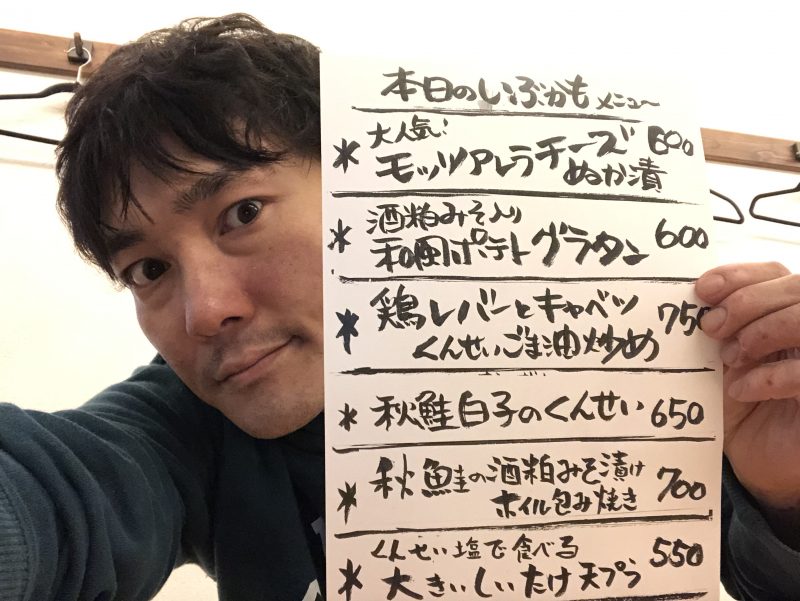 本日のいぶかもメニュー
大人気!
モッツァレラチーズ 600
ぬか漬
酒粕みそ入り
和風ポテトグラタン 600
鶏レバーとキャベツ 750
くんせいごま油炒め
秋鮭白子のくんせい 650
秋鮭の酒粕みそ漬け 700
ホイル包み焼き
くんせい塩で食べる 550
大きいしいたけ天プラ